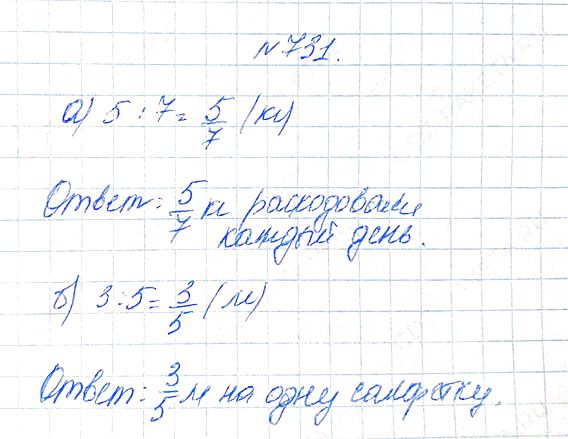 №731.
а) 5 : 7 = 5/7 (кг)
Ответ: 5/7 кг расходовали
каждый день.
б) 3 : 5 = 3/5 (м)
Ответ: 3/5 м на одну салфетку.